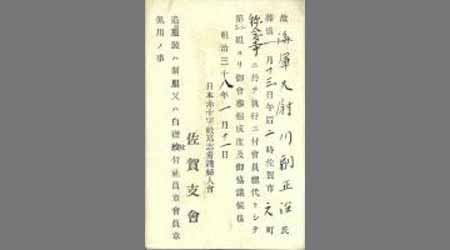 故海軍大尉川副正治氏
葬儀一月十三日午后一時佐賀市元町
称念寺ニ於テ執行ニ付會員總代トシテ
第二組ヨリ御會葬相成度及御協議候也
明治三十八年一月十一日
日本赤十字社篤志看護婦人會
佐賀支會
追テ服装ハ制服又ハ白襟紋付社員章會員章
佩用ノ事